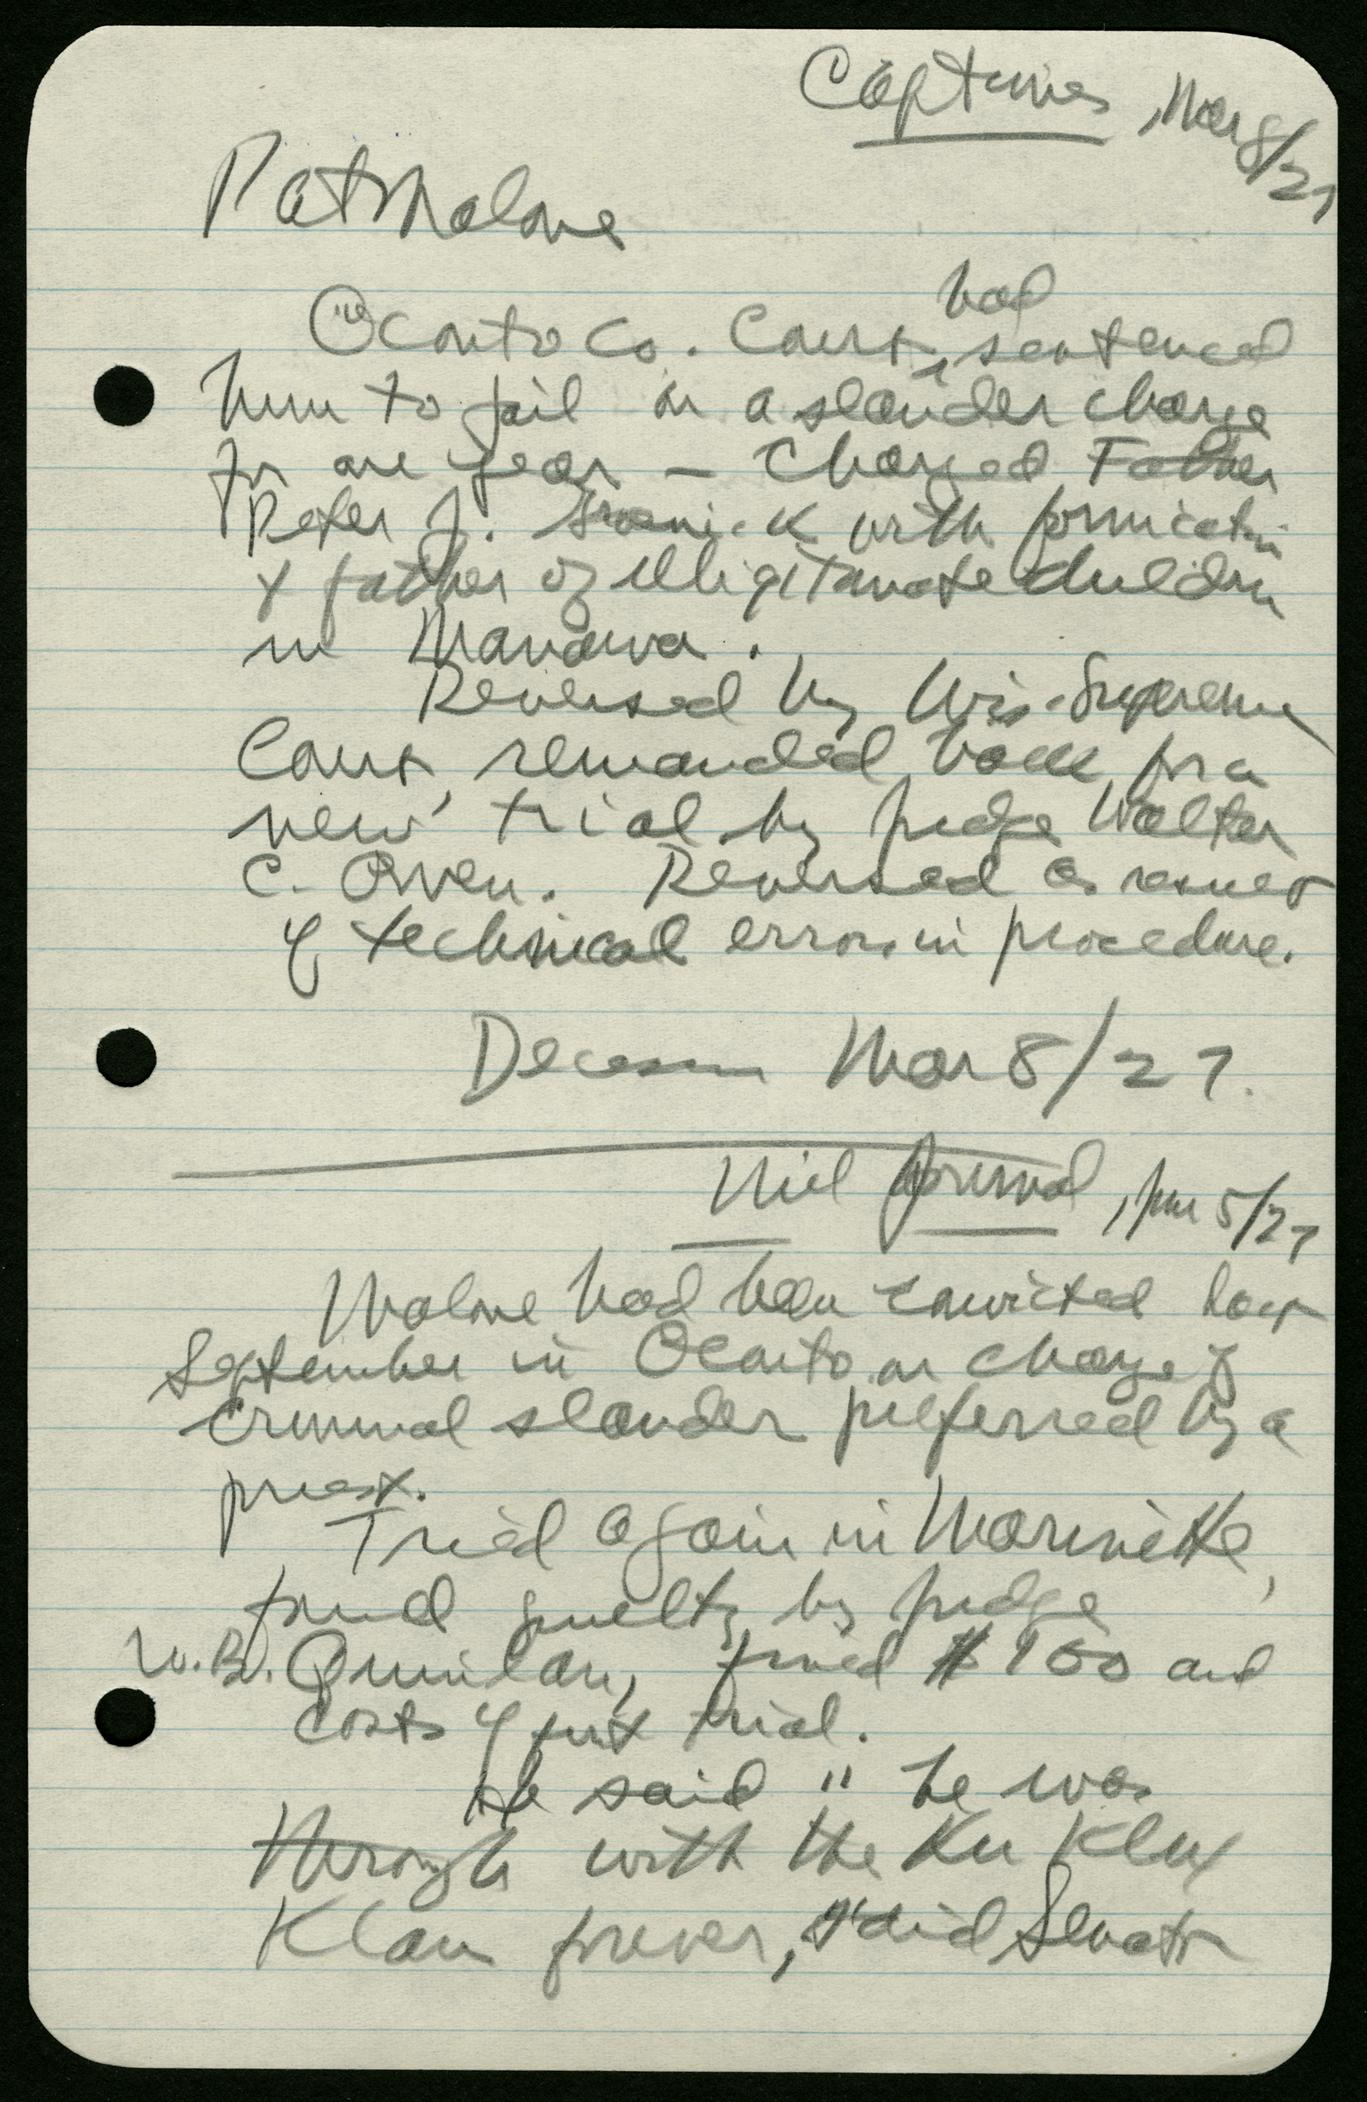 CapTimes, Mar 8/27
Pat Malone
Oconto Co. Court had sentenced
him to jail on a slander charge
for one year — charged Father
Peter J. with fornication
& father of illigitamate children
in Manawa.
Reversed by Wis. Supreme
Court, remanded back for a
new trial by Judge Walter
C. Owen. Reversed as result
of technical errors in procedure.
Decision Mar 8/27.
Mil Journal, Jun 5/27
Malone had been convicted last
September in Oconto on charge of
criminal slander preferred by a
priest.
Tried again in Marinette,
found guilty by Judge
W.B. Quinlan, fined $100 and
costs of first trial.
He said " he was
through with the Ku Klux
Klan forever," said Senator